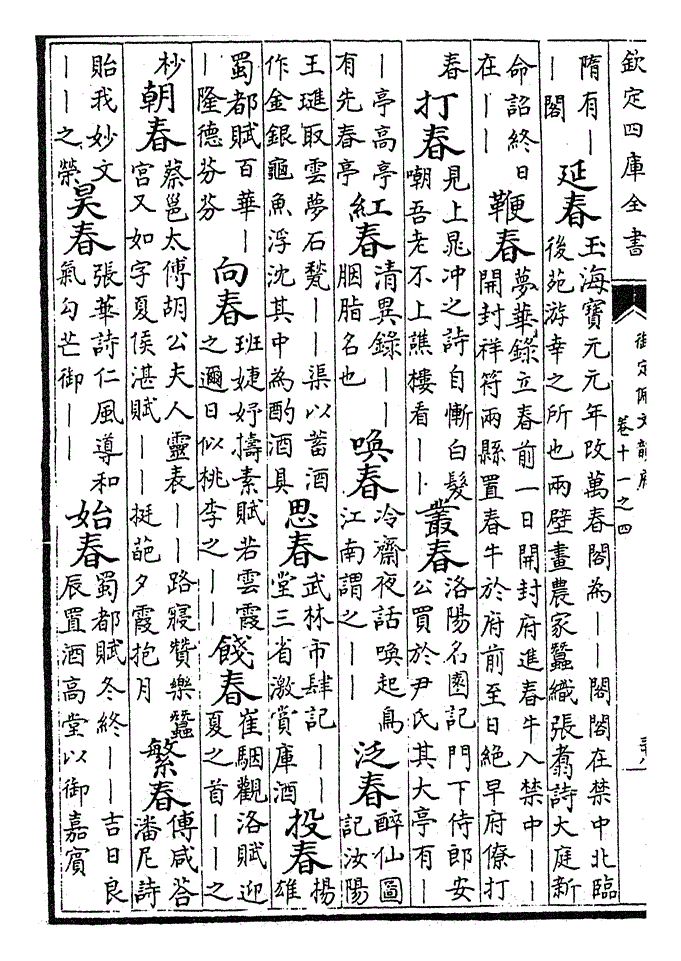 欽定四庫全書
御定佩文韻府
卷十一之四
隋有—
—閣
延春
玉海寶元元年改萬春閣為——閣閣在禁中北臨
後苑游幸之所也兩壁畫農家蠶織張翥詩大庭新
命詔終日
在——
鞭春
夢華錄立春前一日開封府進春牛入禁中——
開封祥符兩縣置春牛於府前至日絕早府僚打
春
打春
見上晁冲之詩自慚白髮
嘲吾老不上譙樓看——
叢春
洛陽名園記門下侍郎安
公買於尹氏其大亭有—
—亭高亭
有先春亭
紅春
清異錄——
胭脂名也
喚春
冷齋夜話喚起鳥
江南謂之——
泛春
醉仙圖
記汝陽
王璡取雲夢石甃——渠以蓄酒
作金銀龜魚浮沈其中為酌酒具
思春
武林市肆記——
堂三省激賞庫酒
投春
揚
雄
蜀都賦百華—
—隆德芬芬
向春
班婕妤擣素賦若雲霞
之邇日似桃李之——
餞春
崔駰觀洛賦迎
夏之首——之
杪
朝春
蔡邕太傅胡公夫人靈表——路寢贊樂蠶
宮又如字夏侯湛賦——挺葩夕霞抱月
繁春
傅咸答
潘尼詩
貽我妙文
——之榮
昊春
張華詩仁風導和
氣勾芒御——
始春
蜀都賦冬終——吉日良
辰置酒高堂以御嘉賓